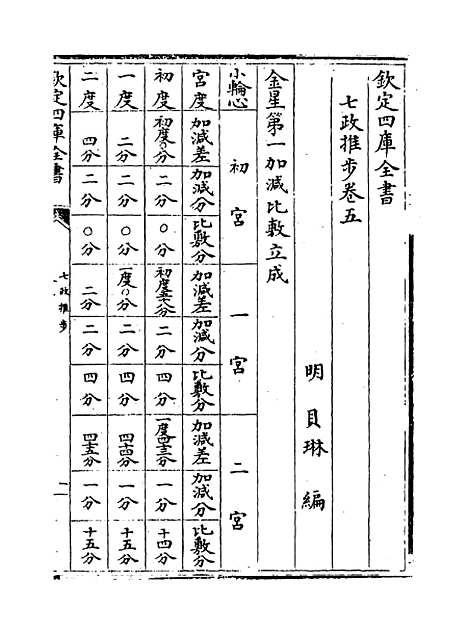 欽定四庫全書
七政推步卷五
明 貝琳 編
金星第一加減比敷立成
小輪心 初宮 一宮 二宮
宮度 加減差 加減分 比敷分 加減差 加減分 比敷分 加減差 加減分 比敷分
初度 初度〇分 二分 〇分 初度五六分 二分 四分 一度四十三分 一分 十四分
一度 二分 二分 〇分 一度〇分 二分 四分 四十四分 一分 十五分
二度 四分 二分 〇分 二分 二分 四分 四十五分 一分 十五分
欽定四庫全書
七政推步
二